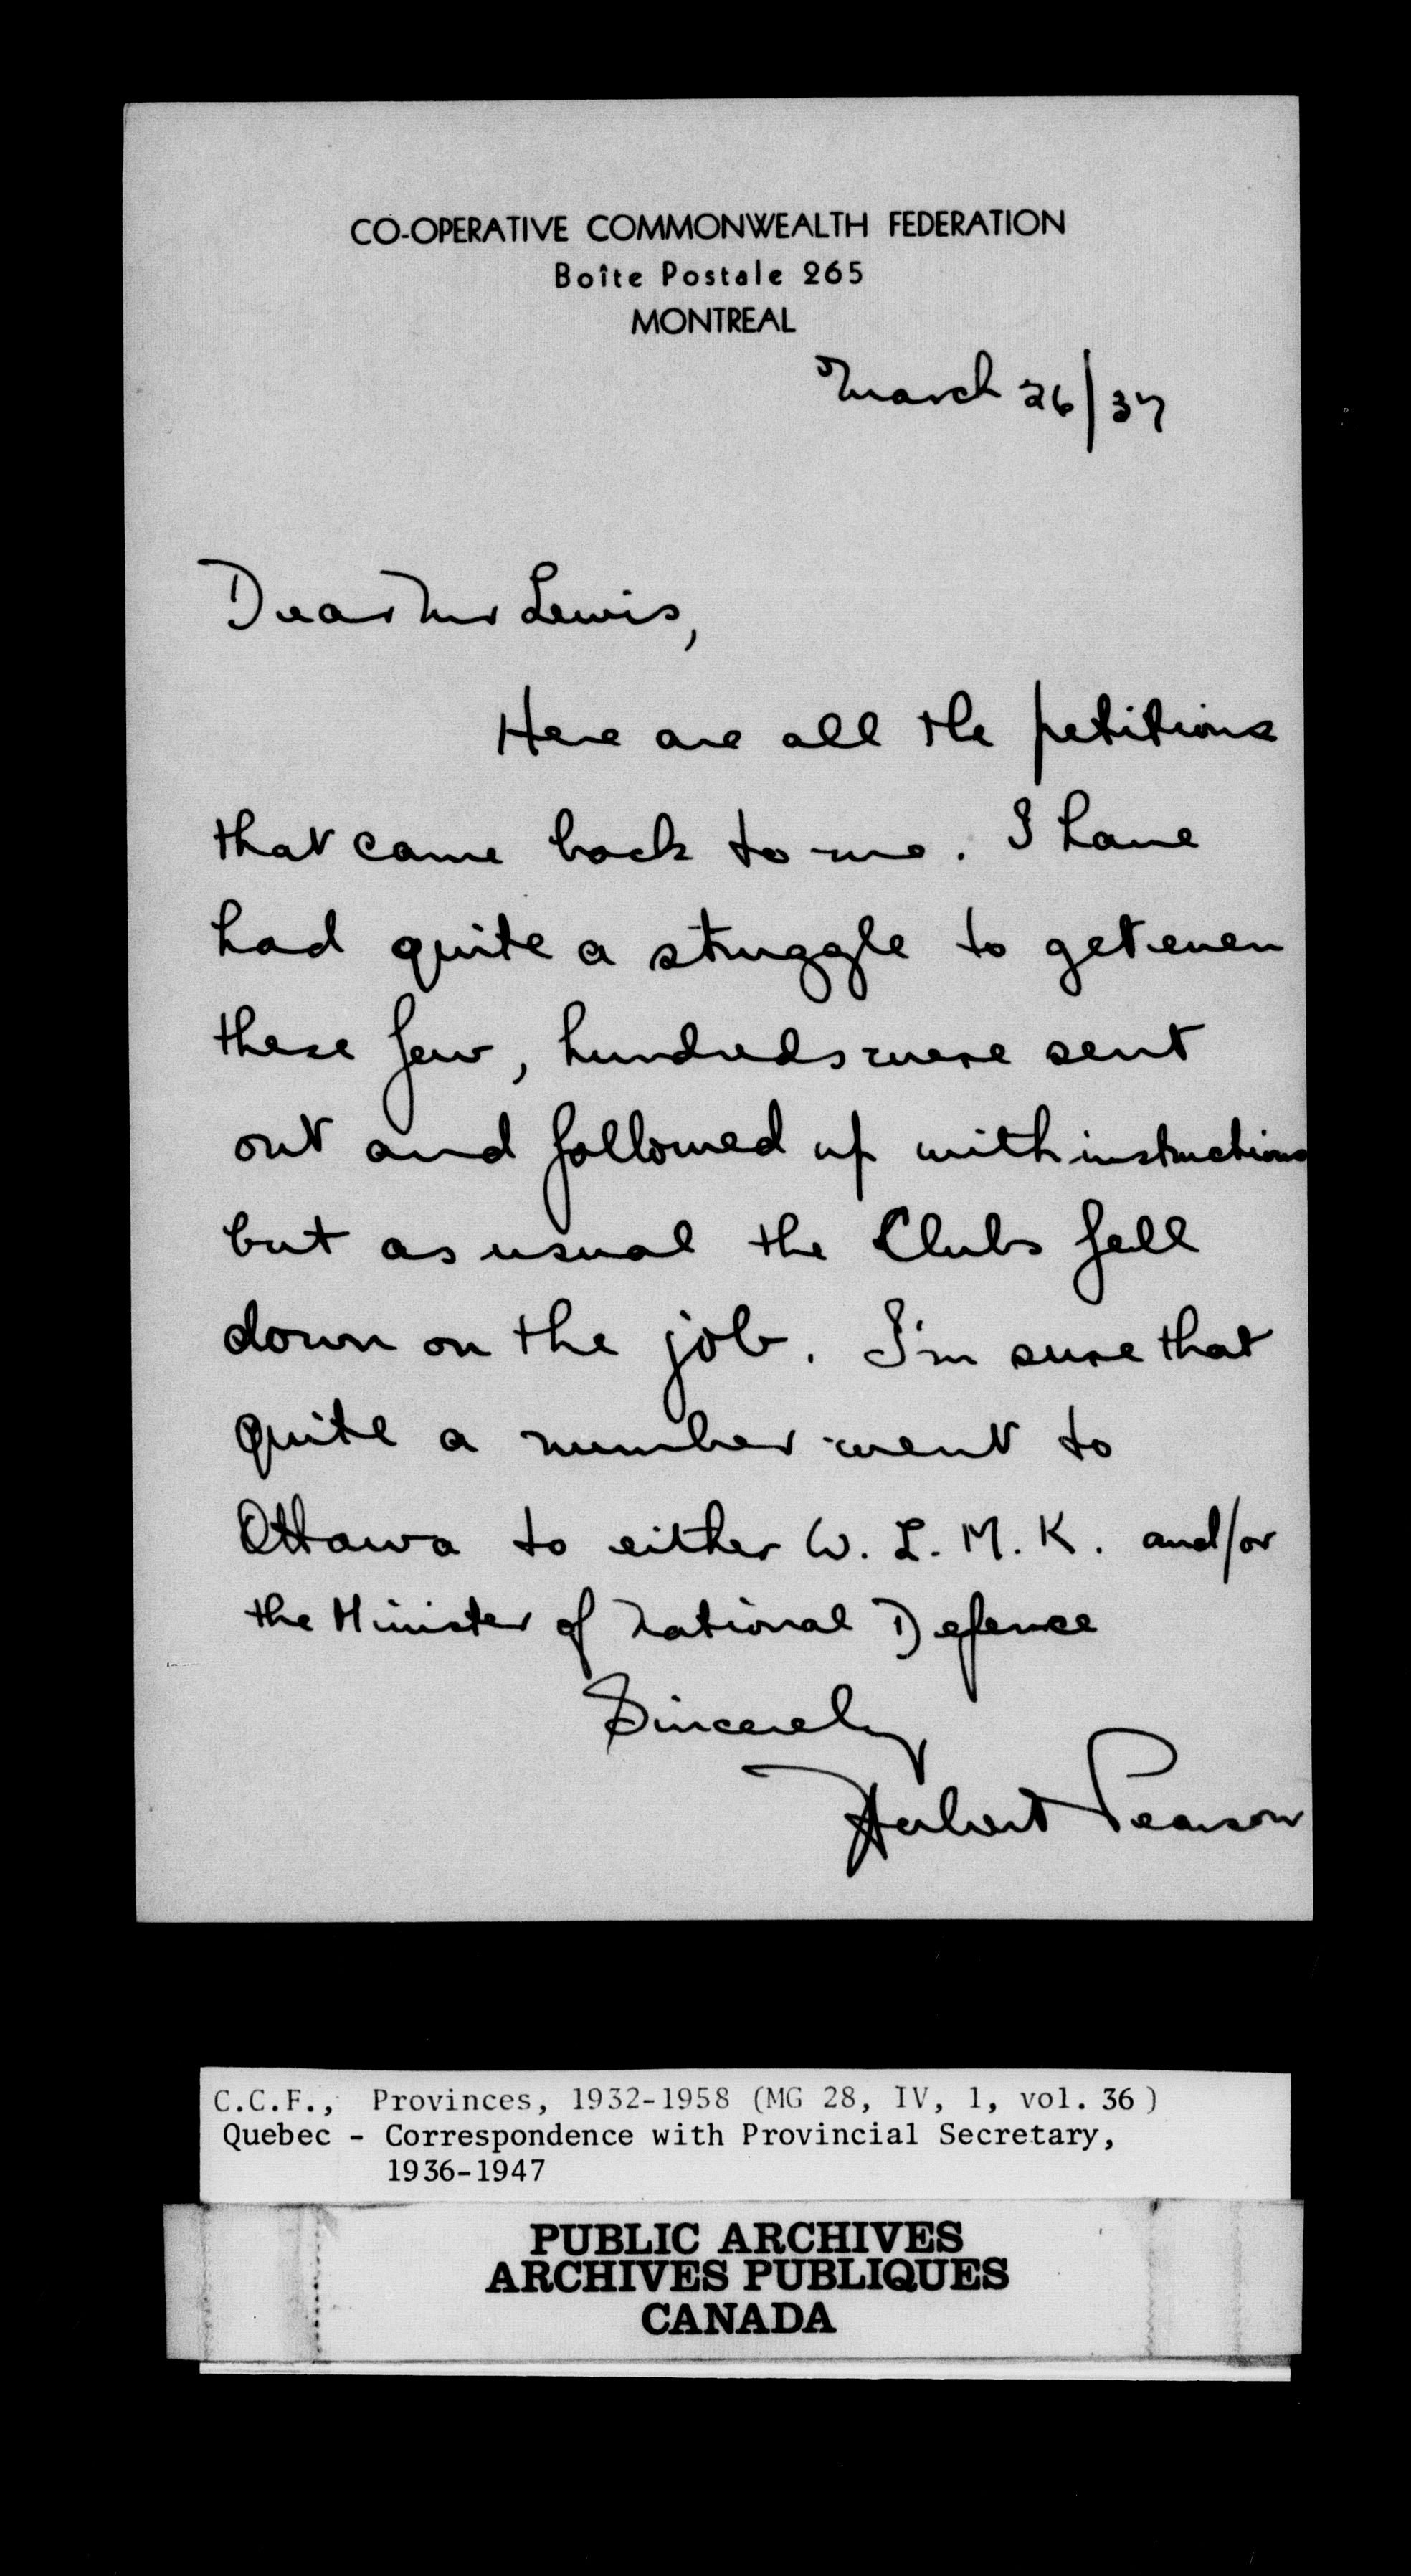 CO-OPERATIVE COMMONWEALTH FEDERATION
Boîte Postale 265
MONTREAL
March 26/37
Dear Mr Lewis,
Here are all the petitions
that came back to me. I have
had quite a struggle to get even
these few, hundreds were sent
out and followed up with instructions
but as usual the Clubs fell
down on the job. I'm sure that
quite a number went to
Ottawa to either W. L. M. K. and/or
the Minister of National Defence
Sincerely
Herbert Pearson
C.C.F., Provinces, 1932-1958 (MG 28, IV, 1, vol. 36)
Quebec - Correspondence with Provincial Secretary,
1936-1947
PUBLIC ARCHIVES
ARCHIVES PUBLIQUES
CANADA